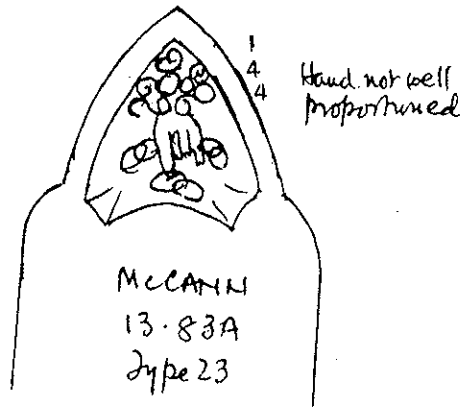 1
4
4
Hand not well
proportuned
McCANN
13.83A
Type 23